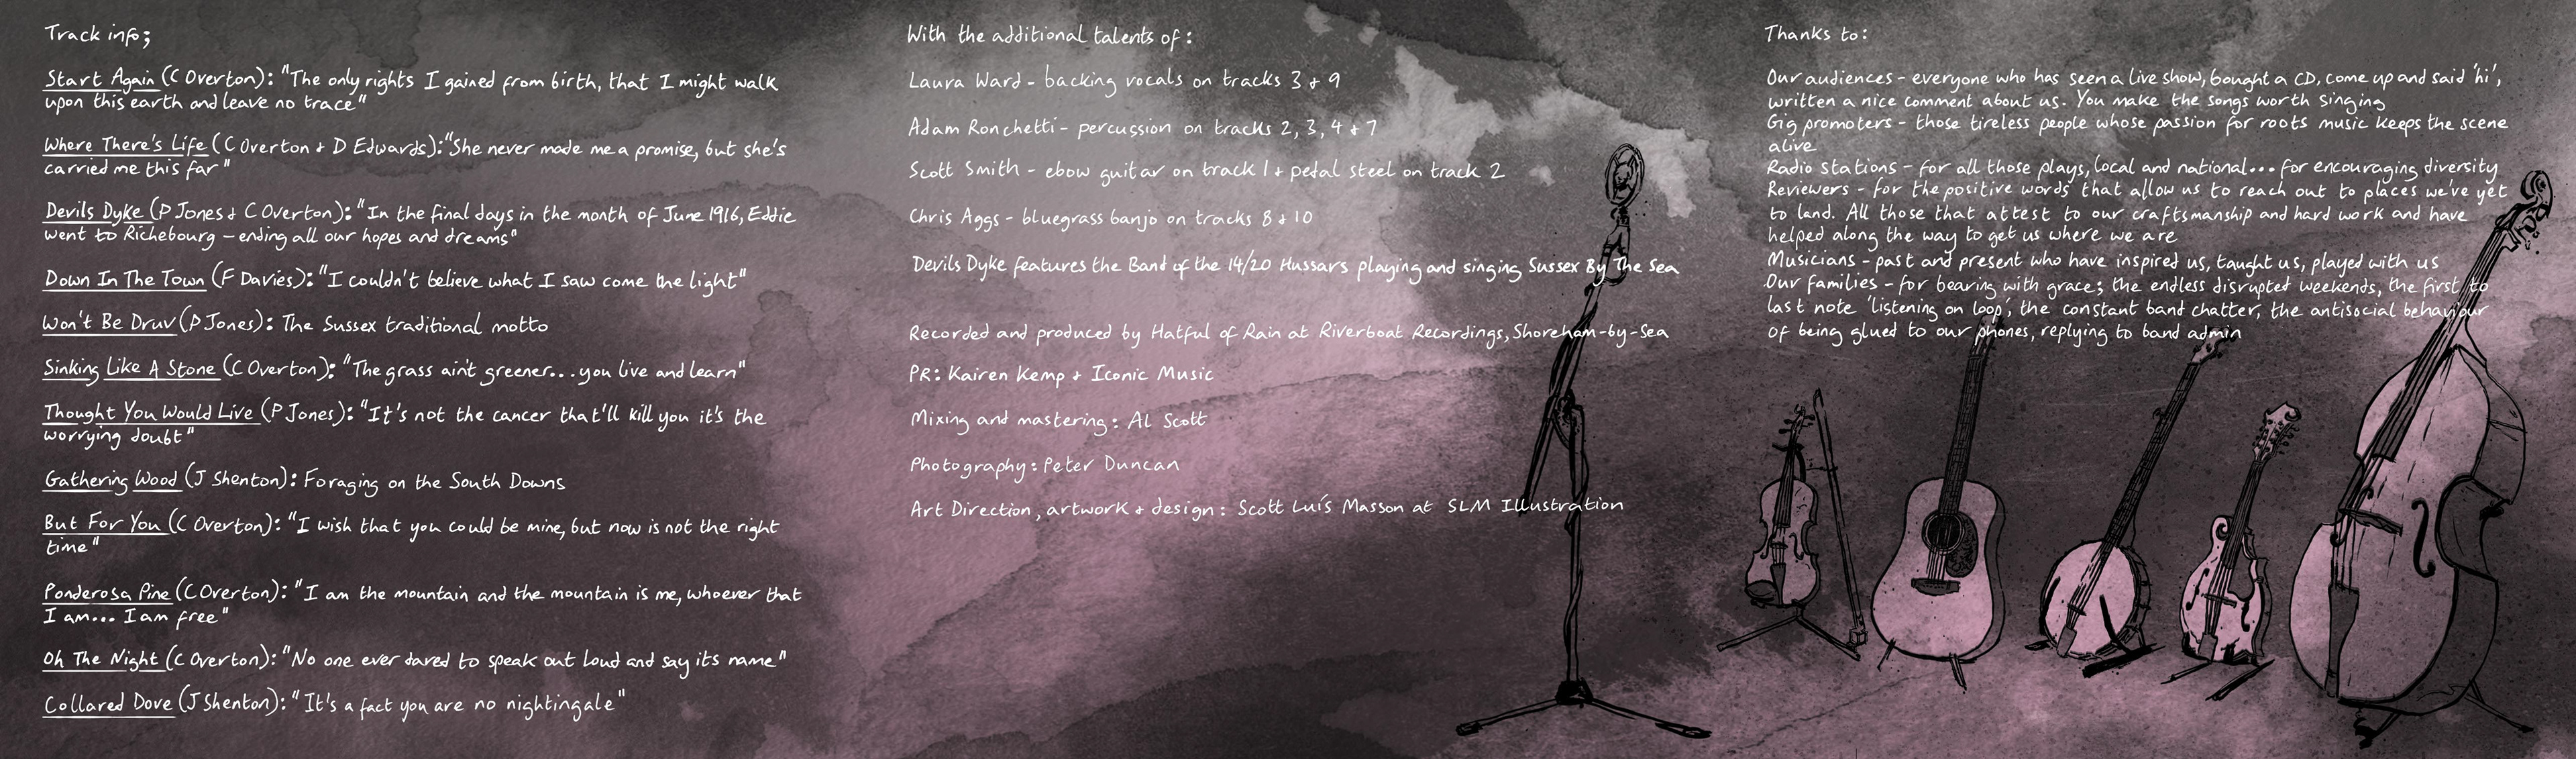 Track info;
Start Again (C Overton): "The only rights I gained from birth, that I might walk
upon this earth and leave no trace"
Where There's Life (C Overton + D Edwards): "She never made me a promise, but she's
carried me this far"
Devils Dyke (P Jones + C Overton): "In the final days in the month of June 1916, Eddie
went to Richebourg - ending all our hopes and dreams"
Down In The Town (F Davies): "I couldn't believe what I saw come the light"
Won't Be Druv (P Jones): The Sussex traditional motto
Sinking Like A Stone (C Overton): "The grass ain't greener... you live and learn"
Thought You Would Live (P Jones): "It's not the cancer that'll kill you it's the
worrying doubt"
Gathering Wood (J Shenton): Foraging on the South Downs
But For You (C Overton): "I wish that you could be mine, but now is not the right
time"
Ponderosa Pine (C Overton): "I am the mountain and the mountain is me, whoever that
I am... I am free"
Oh The Night (C Overton): "No one ever dared to speak out loud and say its name"
Collared Dove (J Shenton): "It's a fact you are no nightingale"
With the additional talents of:
Laura Ward - backing vocals on tracks 3 + 9
Adam Ronchetti - percussion on tracks 2, 3, 4 + 7
Scott Smith - ebow guitar on track 1 + pedal steel on track 2
Chris Aggs - bluegrass banjo on tracks 8 + 10
Devils Dyke features the Band of the 14/20 Hussars playing and singing Sussex By The Sea
Recorded and produced by Hatful of Rain at Riverboat Recordings, Shoreham-by-Sea
PR: Kairen Kemp + Iconic Music
Mixing and mastering: Al Scott
Photography: Peter Duncan
Art Direction, artwork + design: Scott Luís Masson at SLM Illustration
Thanks to:
Our audiences - everyone who has seen a live show, bought a CD, come up and said 'hi',
written a nice comment about us. You make the songs worth singing
Gig promoters - those tireless people whose passion for roots music keeps the scene
alive
Radio stations - for all those plays, local and national... for encouraging diversity
Reviewers - for the positive words that allow us to reach out to places we've yet
to land. All those that attest to our craftsmanship and hard work and have
helped along the way to get us where we are
Musicians - past and present who have inspired us, taught us, played with us
Our families - for bearing with grace; the endless disrupted weekends, the first to
last note 'listening on loop', the constant band chatter, the antisocial behaviour
of being glued to our phones, replying to band admin